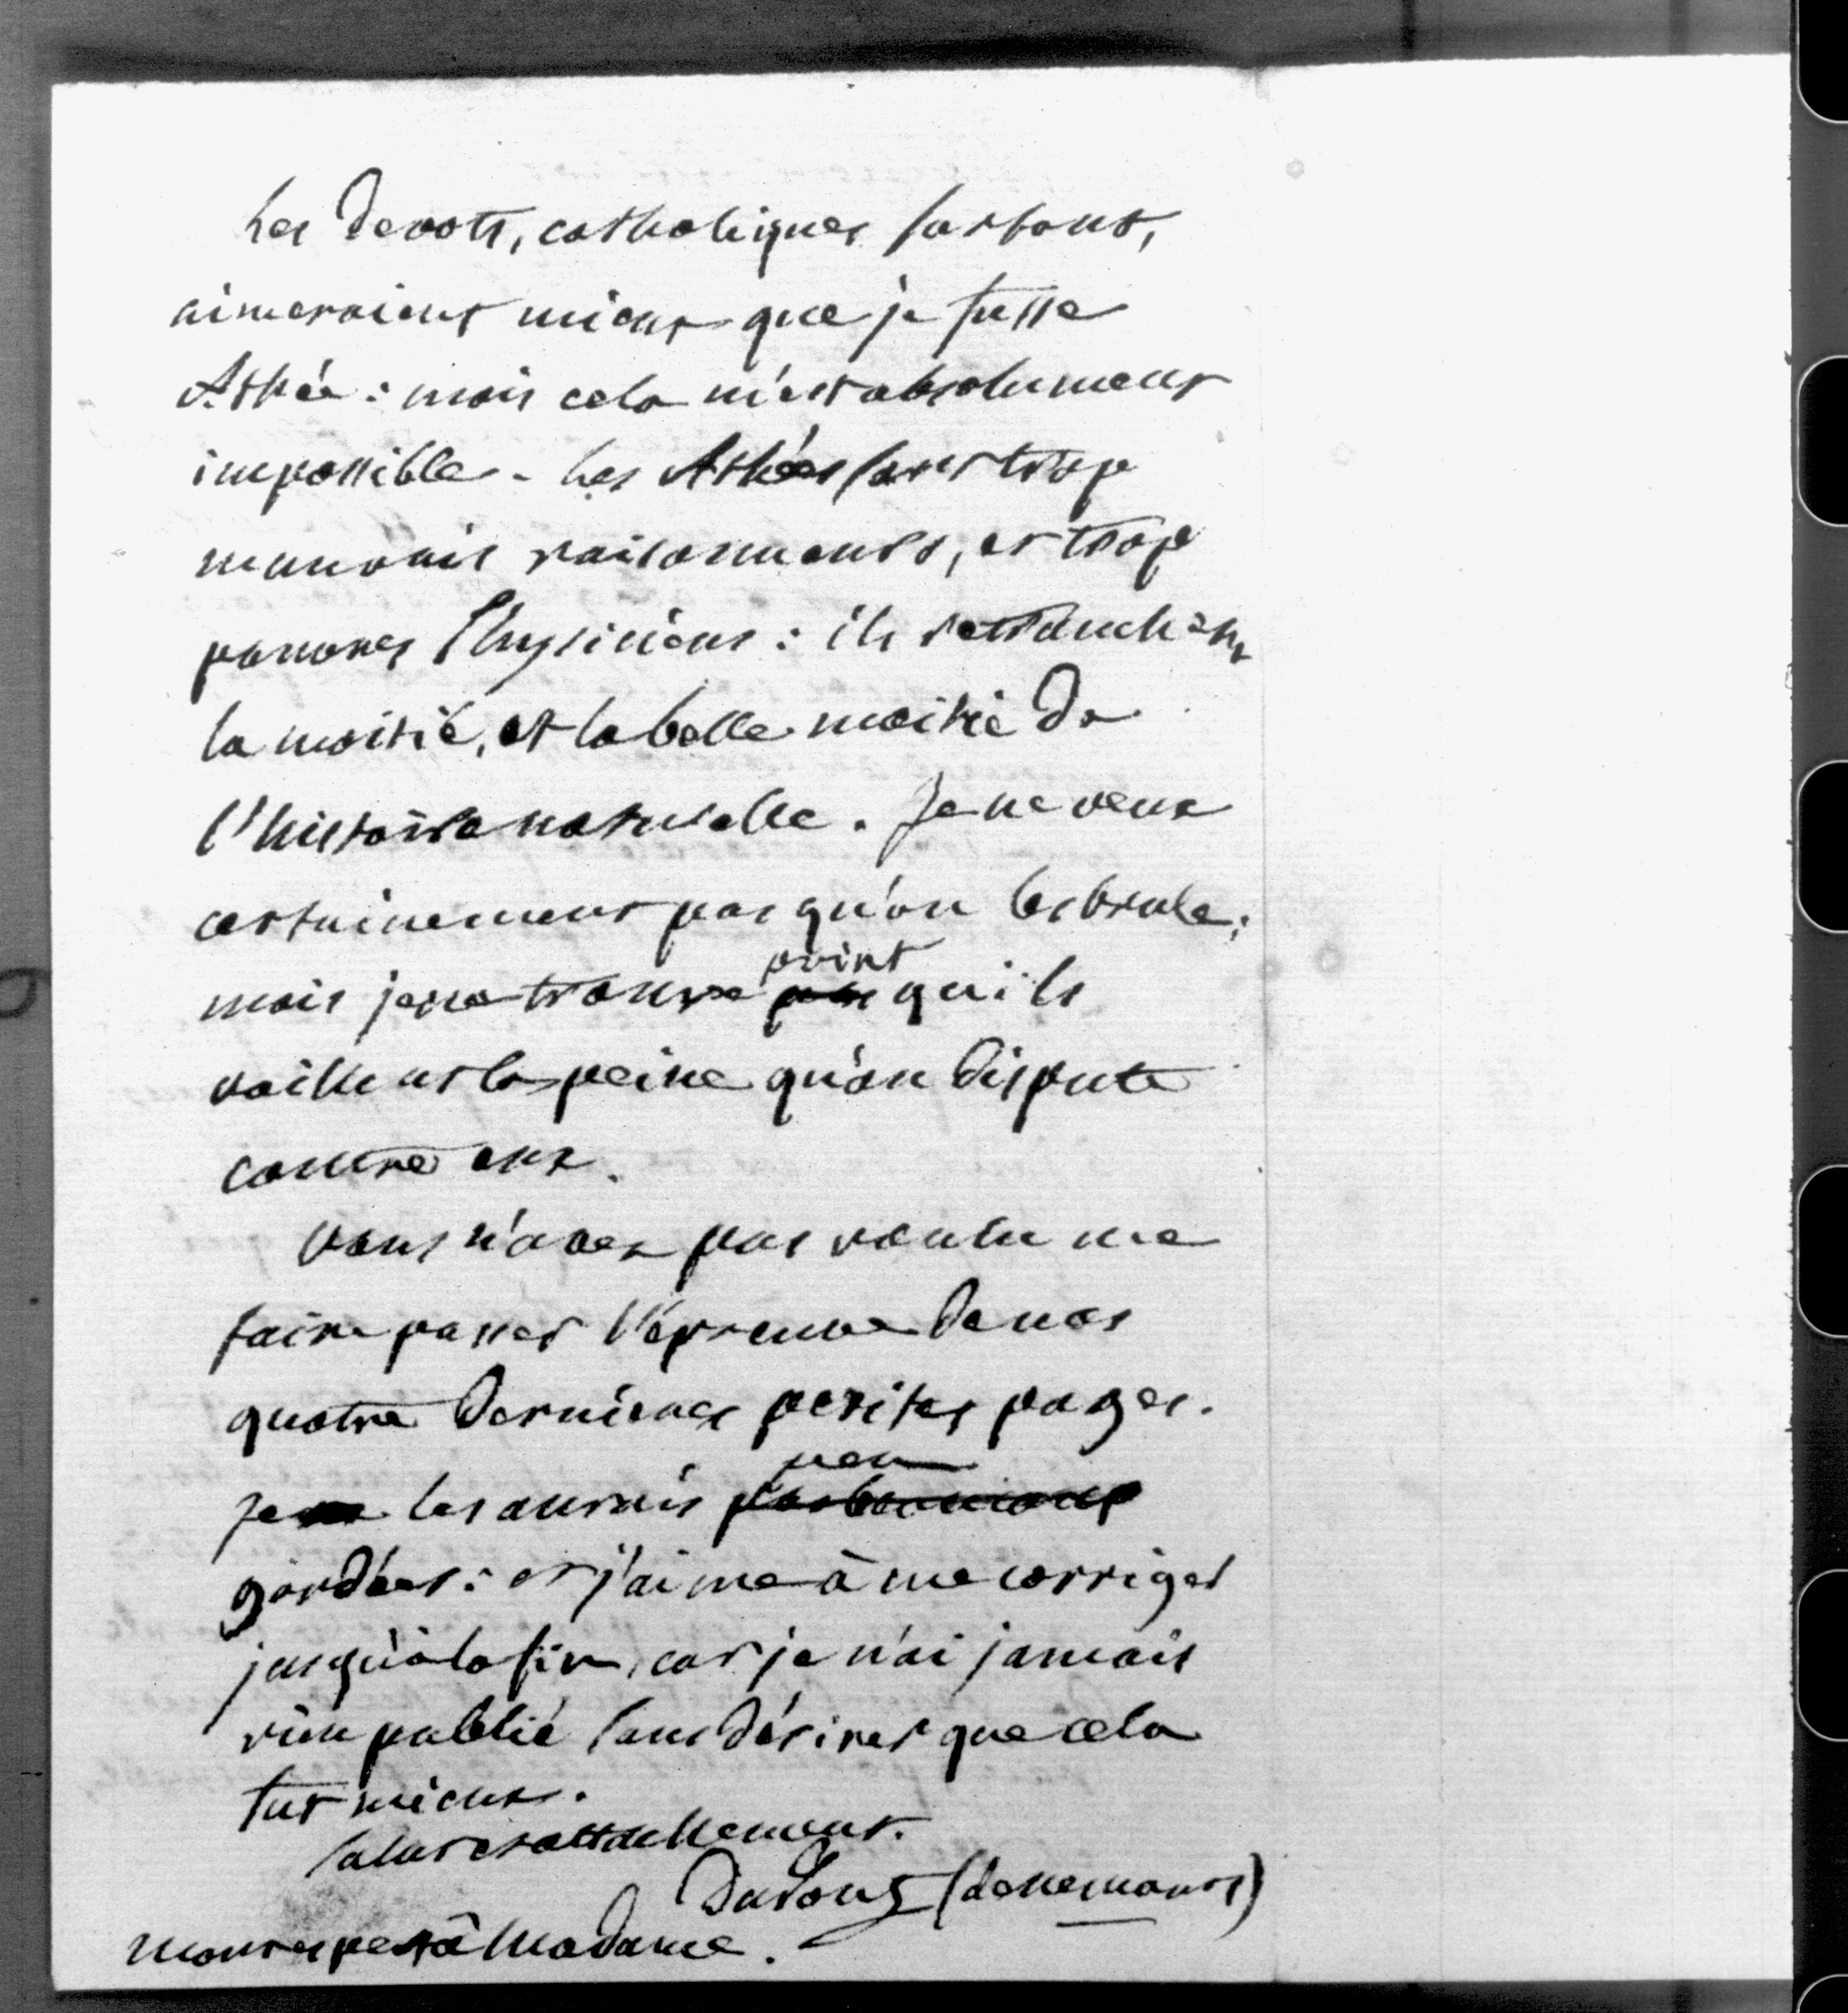 Les Devots, catholiques surtout,
aimeraient mieux que je fusse
Athée : mais cela m'est absolument
impossible. Les Athées sont trop
mauvais raisonneurs, et trop
pauvres Physiciens : ils retranchent
la moitié, et la belle moitié de
l'histoire naturelle. Je ne veux
certainement pas qu'on les brule ;
mais je ne trouve pas point qu'ils
vaillent la peine qu'on dispute
contre eux.
Vous n'avez pas voulu me
faire passer l'épreuve de nos
quatre dernieres petites pages.
Je les aurais peu
gardées : et j'aime à me corriger
jusqu'à la fin, car je n'ai jamais
rien publié sans désirer que cela
fut mieux.
Salut et attachement.
DuPont (de nemours)
mon respect à Madame.